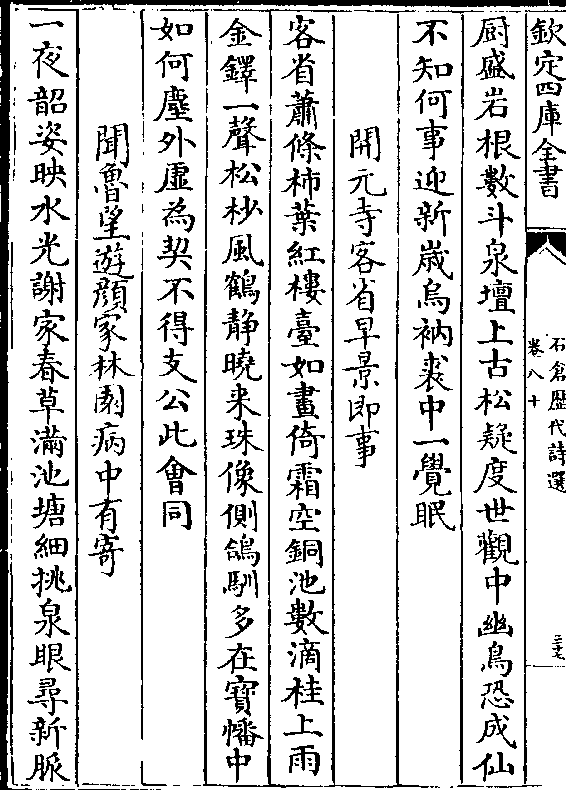 欽定四庫全書
石倉歴代詩選
卷八十
三七
厨盛岩根數斗泉壇上古松疑度世觀中幽鳥恐成仙
不知何事迎新嵗烏衲裘中一覺眠
開元寺客省早景即事
客省蕭條柿葉紅樓臺如畫倚霜空銅池數滴桂上雨
金鐸一聲松杪風鶴静曉来珠像側鴿馴多在寳幡中
如何塵外虛為契不得支公此會同
聞魯望遊顔家林園病中有寄
一夜韶姿映水光謝家春草滿池塘細挑泉眼尋新脈